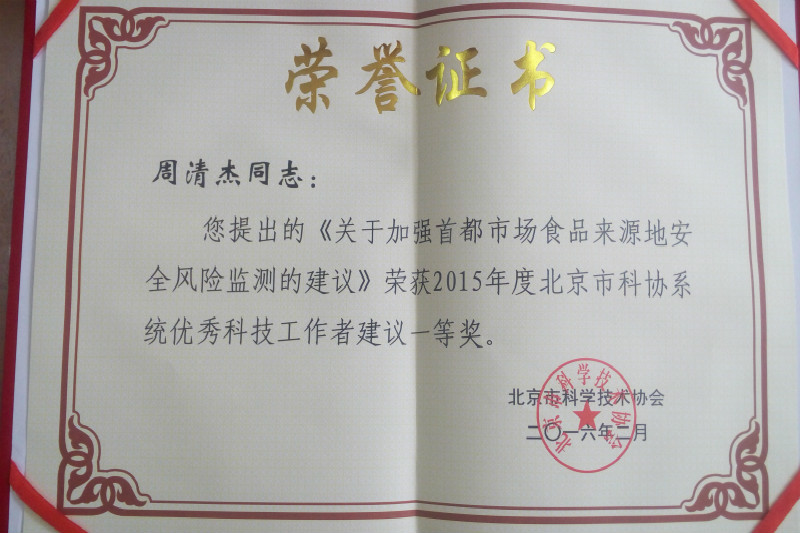 荣誉证书
周清杰同志：
您提出的《关于加强首都市场食品来源地安
全风险监测的建议》荣获2015年度北京市科协系
统优秀科技工作者建议一等奖。
北京市科学技术协会
二〇一六年二月
北京市科学技术协会